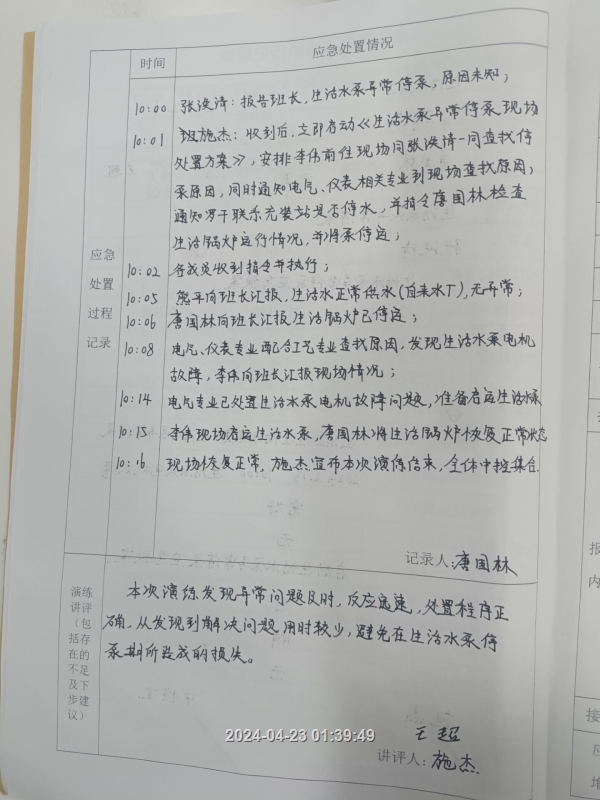 时间
应急处置情况
10:00 张浚清：报告班长，生活水泵异常停泵，原因未知；
10:01 班施杰：收到后，立即启动《生活水泵异常停泵现场
处置方案》，安排李伟前往现场同张浚清一同查找停
泵原因，同时通知电气、仪表相关专业到现场查找原因，
通知 联系充装站是否停水，并指令唐国林检查
生活锅炉运行情况，并将泵停运；
10:02 各成员收到指令并执行；
10:05 熊平向班长汇报，生活水正常供水（自来水厂），无异常；
10:06 唐国林向班长汇报生活锅炉已停运；
10:08 电气、仪表专业配合工艺专业查找原因，发现生活水泵电机
故障，李伟向班长汇报现场情况；
10:14 电气专业已处置生活水泵电机故障问题，准备启运生活水泵
10:15 李伟现场启运生活水泵，唐国林将生活锅炉恢复正常状态
10:16 现场恢复正常，施杰宣布本次演练结束，全体中控集合
应急
处置
过程
记录
记录人：唐国林
演练
讲评
（包
括存
在的
不足
及下
步建
议）
本次演练发现异常问题及时，反应迅速，处置程序正
确，从发现到解决问题用时较少，避免在生活水泵停
泵期所造成的损失。
王超
讲评人：施杰
2024-04-23 01:39:49
报
内
接
应
增